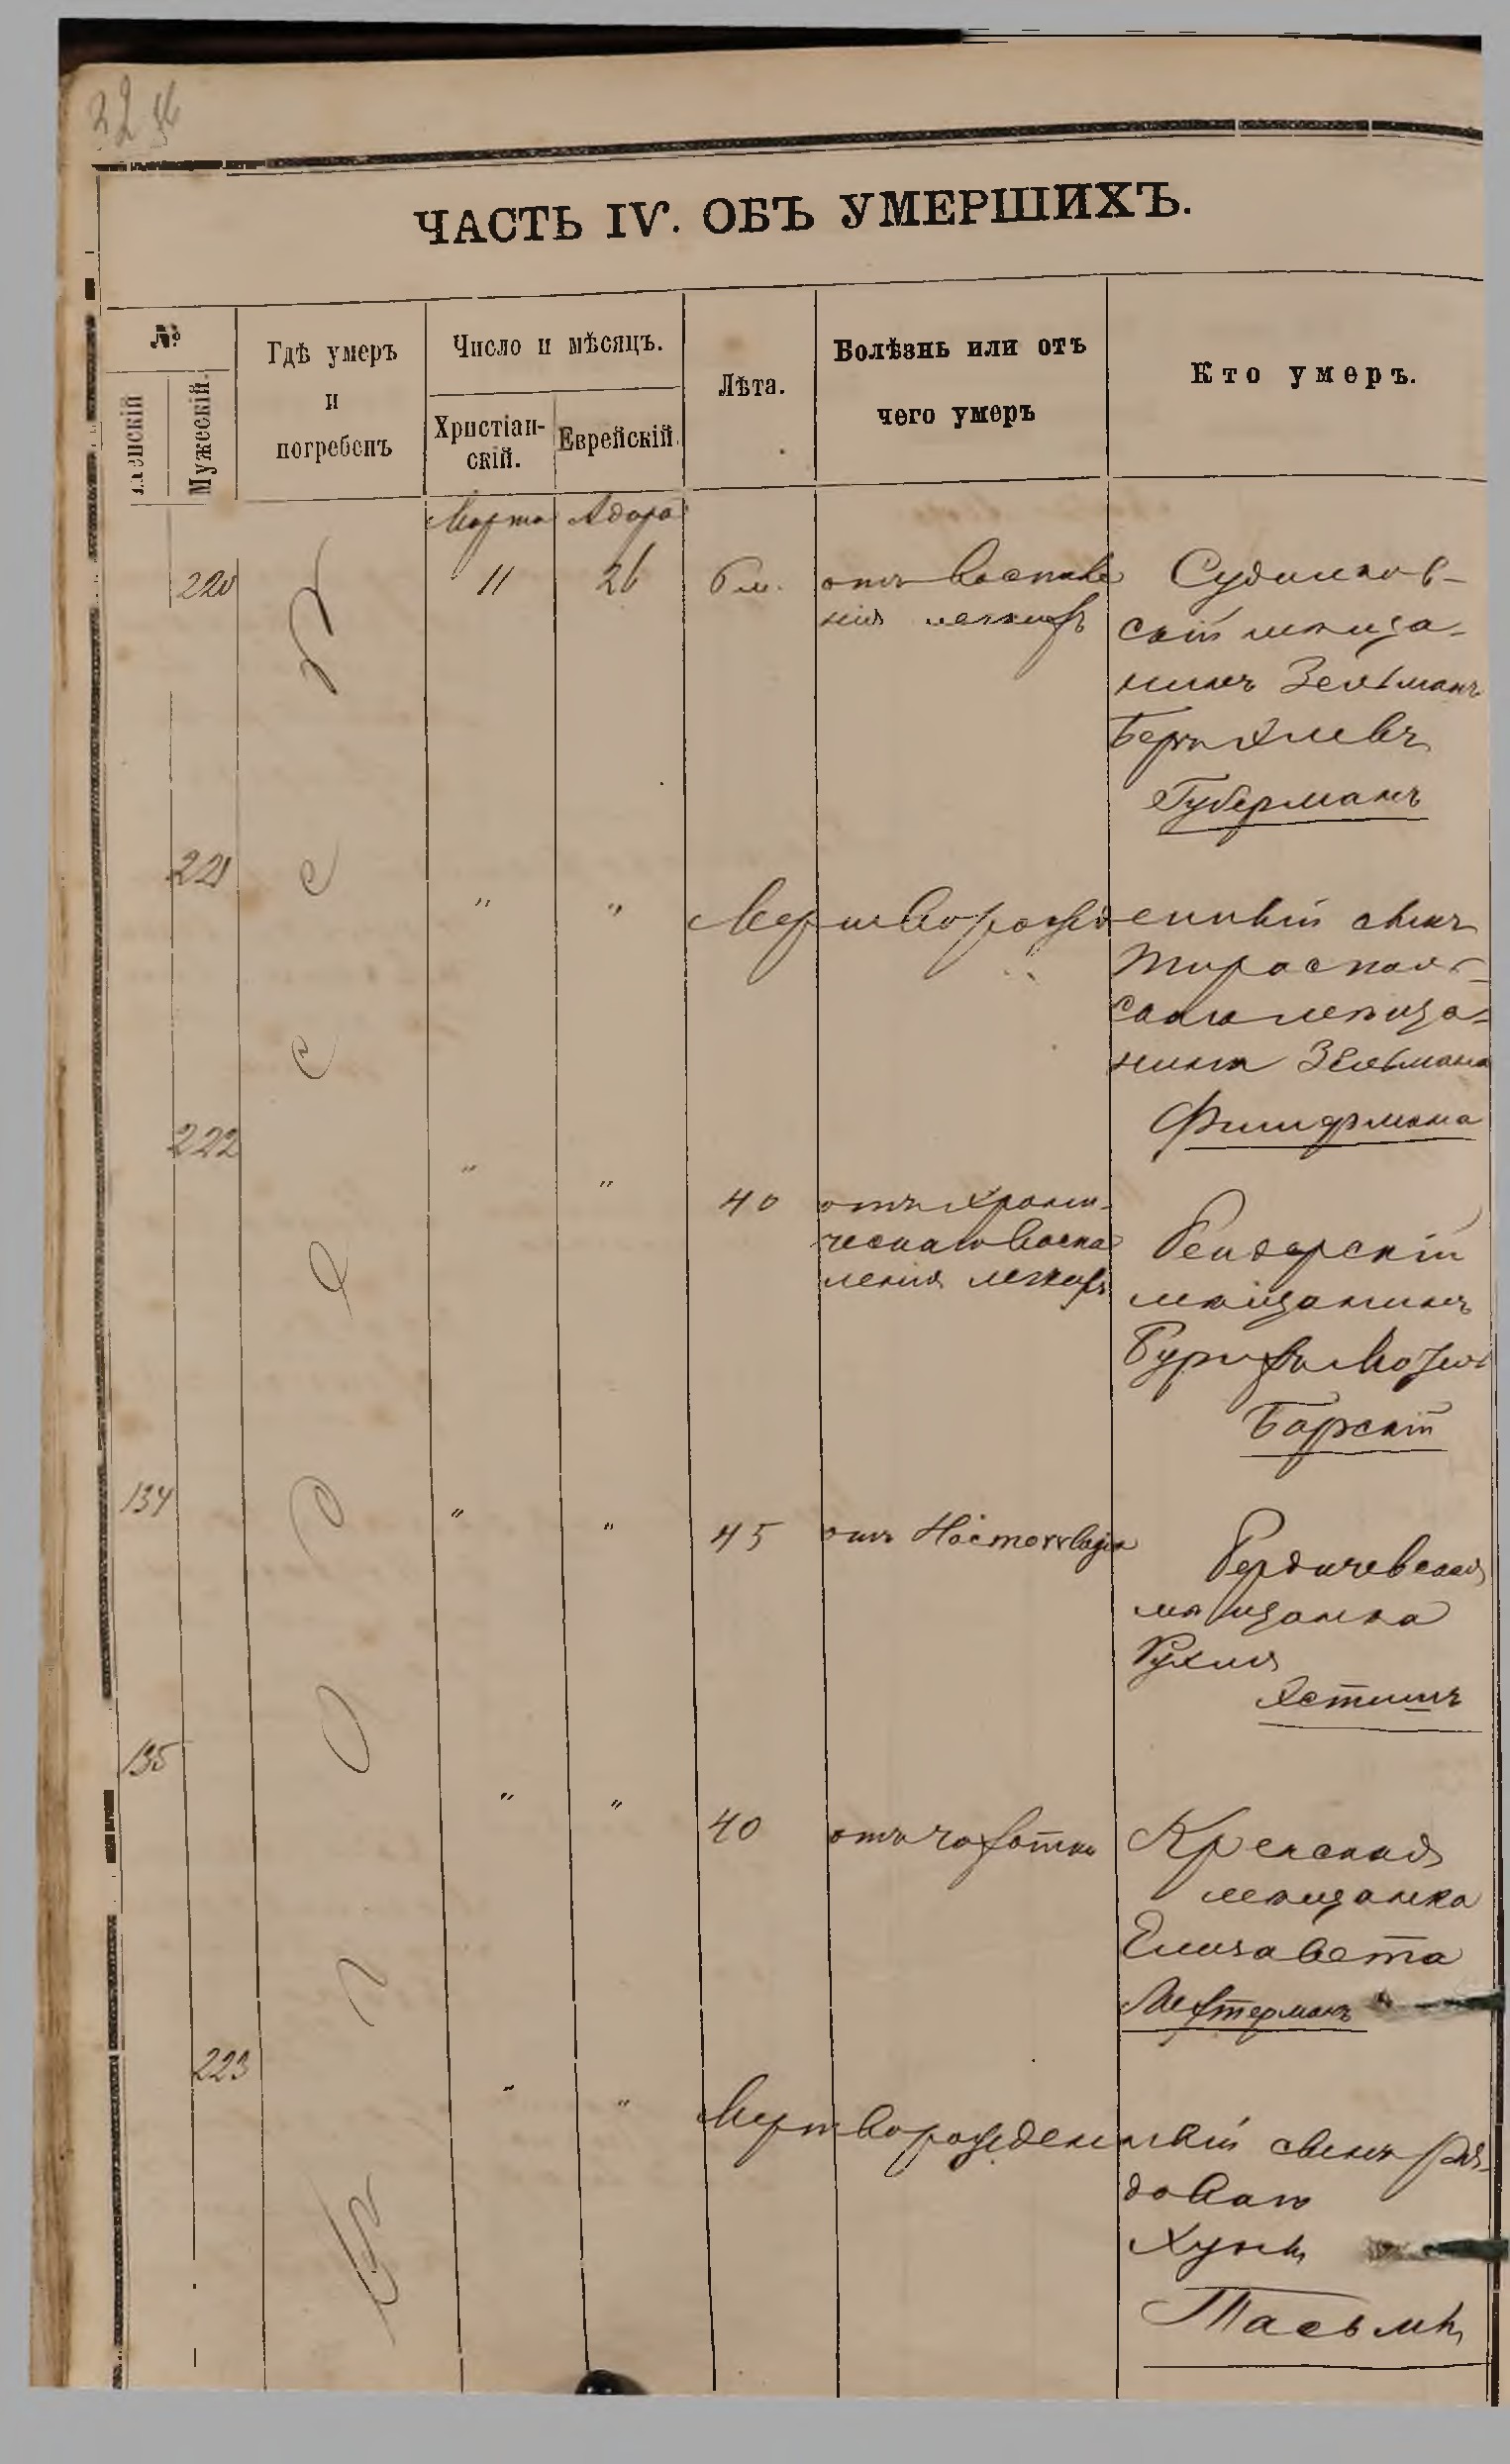 ЧАСТЬ IV. ОБЪ УМЕРШИХЪ.
№
Женскій
Мужескій.
Гдѣ умеръ
и
погребенъ
Число и мѣсяцъ.
Христіан-
скій.
Еврейскій.
Лѣта.
Болѣзнь или отъ
чего умеръ
Кто умеръ.
Марта Адара
220 11 26 6 м. отъ воспале
нія легкихъ
Судилков-
скій мѣща-
нинъ Зельманъ
Беръ
Губерманъ
221 " " Мертворожденный сынъ
Тирасполь-
скаго мѣща-
нина Зельмана
222 " " 40 отъ хрони-
ческаго воспа
ленія легкихъ
Бендерскій
мѣщанинъ
Барскій
134 " " 45 отъ Haemorrhagia
Бердичевская
мѣщанка
Рухля
135 " " 40 отъ чахотки
Кренская
мѣщанка
Елизавета
Мехтерманъ
223 " " Мертворожденный сынъ ря-
доваго